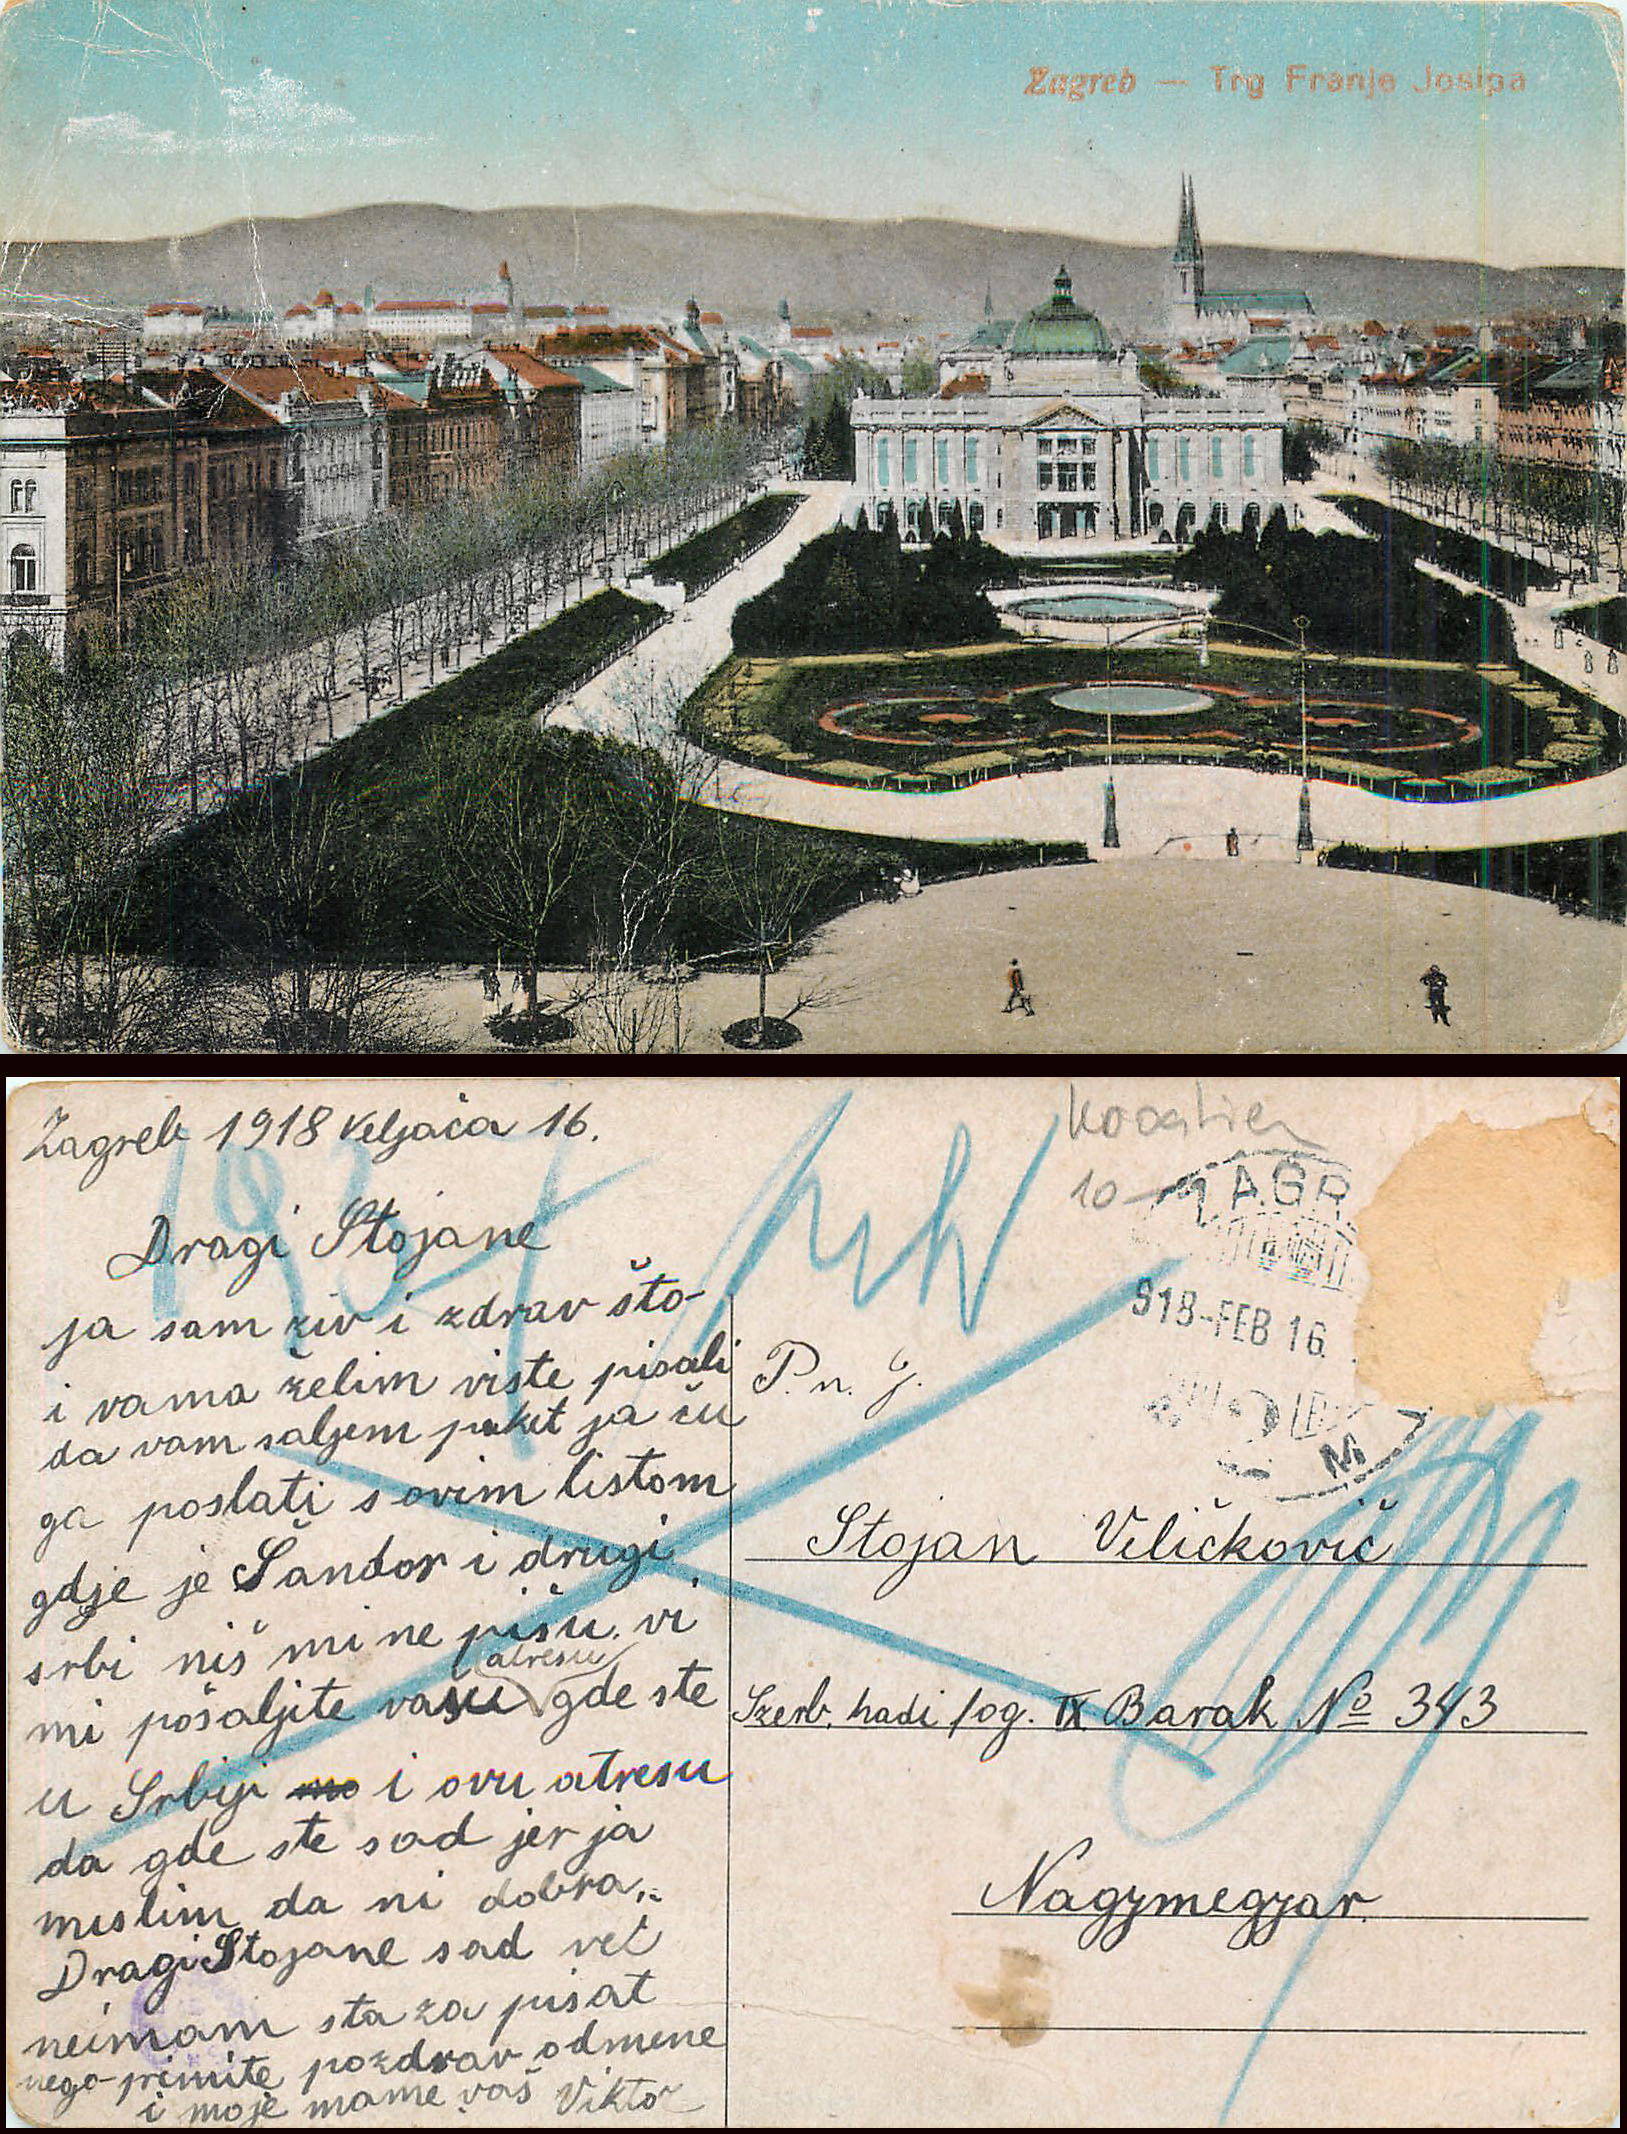 Zagreb — Trg Franje Josipa
Zagreb 1918 Veljača 16.
Dragi Stojane
ja sam živ i zdrav što-
i vama želim viste pisali
da vam saljem paket ja ću
ga poslati s ovim listom
gdje je Šandor i drugi
srbi niš mi ne pišu. vi
mi pošaljite vašu atresu gde ste
u Srbiji i ovu atresu
da gde ste sad jer ja
mislim da ni dobra,
Dragi Stojane sad već
neimam sta za pisat
nego primite pozdrav odmene
i moje mame vaš Viktor
Kroatien
10
ZAGR
918-FEB 16.
P. n. G.
Stojan Veličković
Szerb. hadi fog. IX Barak No 343
Nagymegyar